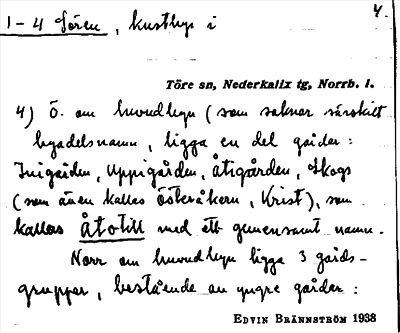 4.
1-4 Sören, kustbys i
Töre sn, Nederkalix tg, Norrb. l.
4) Ö. om huvudbyn (som saknar särskilt
byadelsnamn, ligga en del gårdar:
Inigården, Uppigården, Åtigården, Skogs
(som även kallas Österåkern, Krist), som
kallas Åtotill med ett gemensamt namn.
Norr om huvudbyn ligga 3 gårds-
grupper, bestående av yngre gårdar:
EDVIN BRÄNNSTRÖM 1938